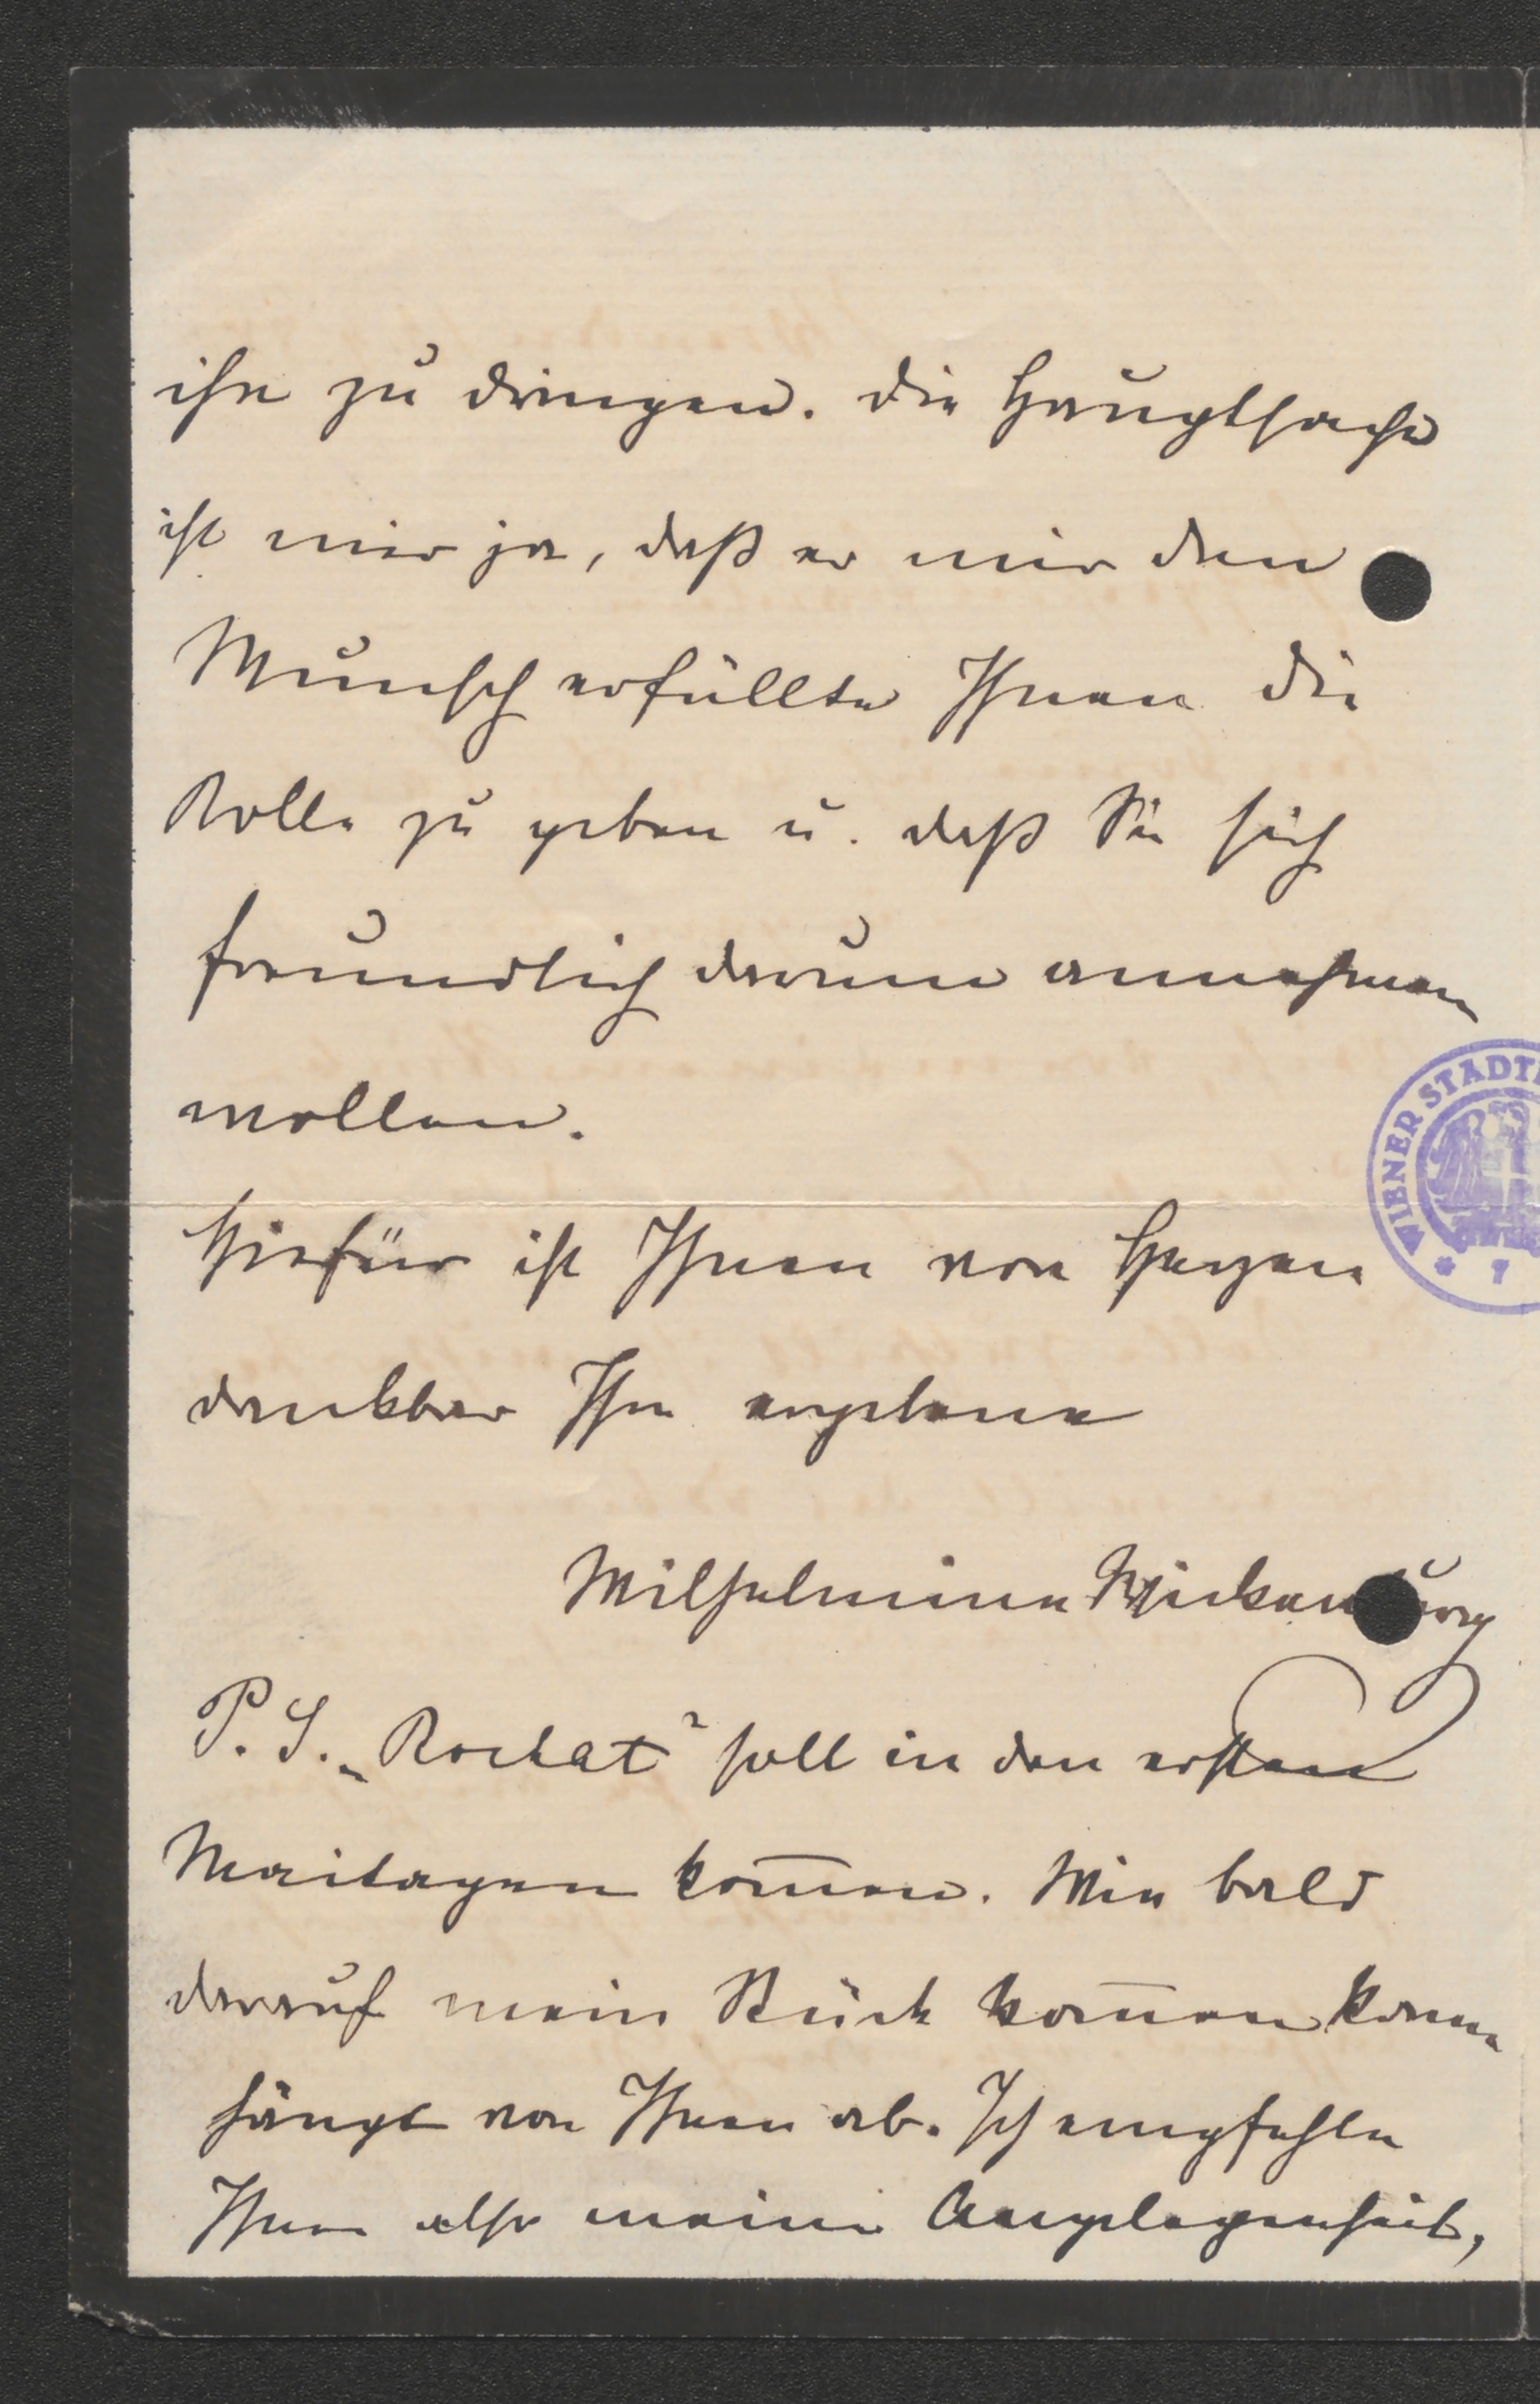 ihn zu dringen. Die Hauptsache
ist mir ja, daß er mir den
Wunsch erfüllte Ihnen die
Rolle zu geben u. daß Sie sich
freundlich darum annehmen
wollen.
WIENER STADT
Hiefür ist Ihnen von Herzen
* 7
dankbar Ihre ergebene
Wilhelmine Wickenburg
P. S. „Rochat" soll in den ersten
Maitagen kom̄en. Wie bald
darauf mein Stück kom̄en kann
hängt von Ihnen ab. Ich empfehle
Ihnen also meine Angelegenheit,